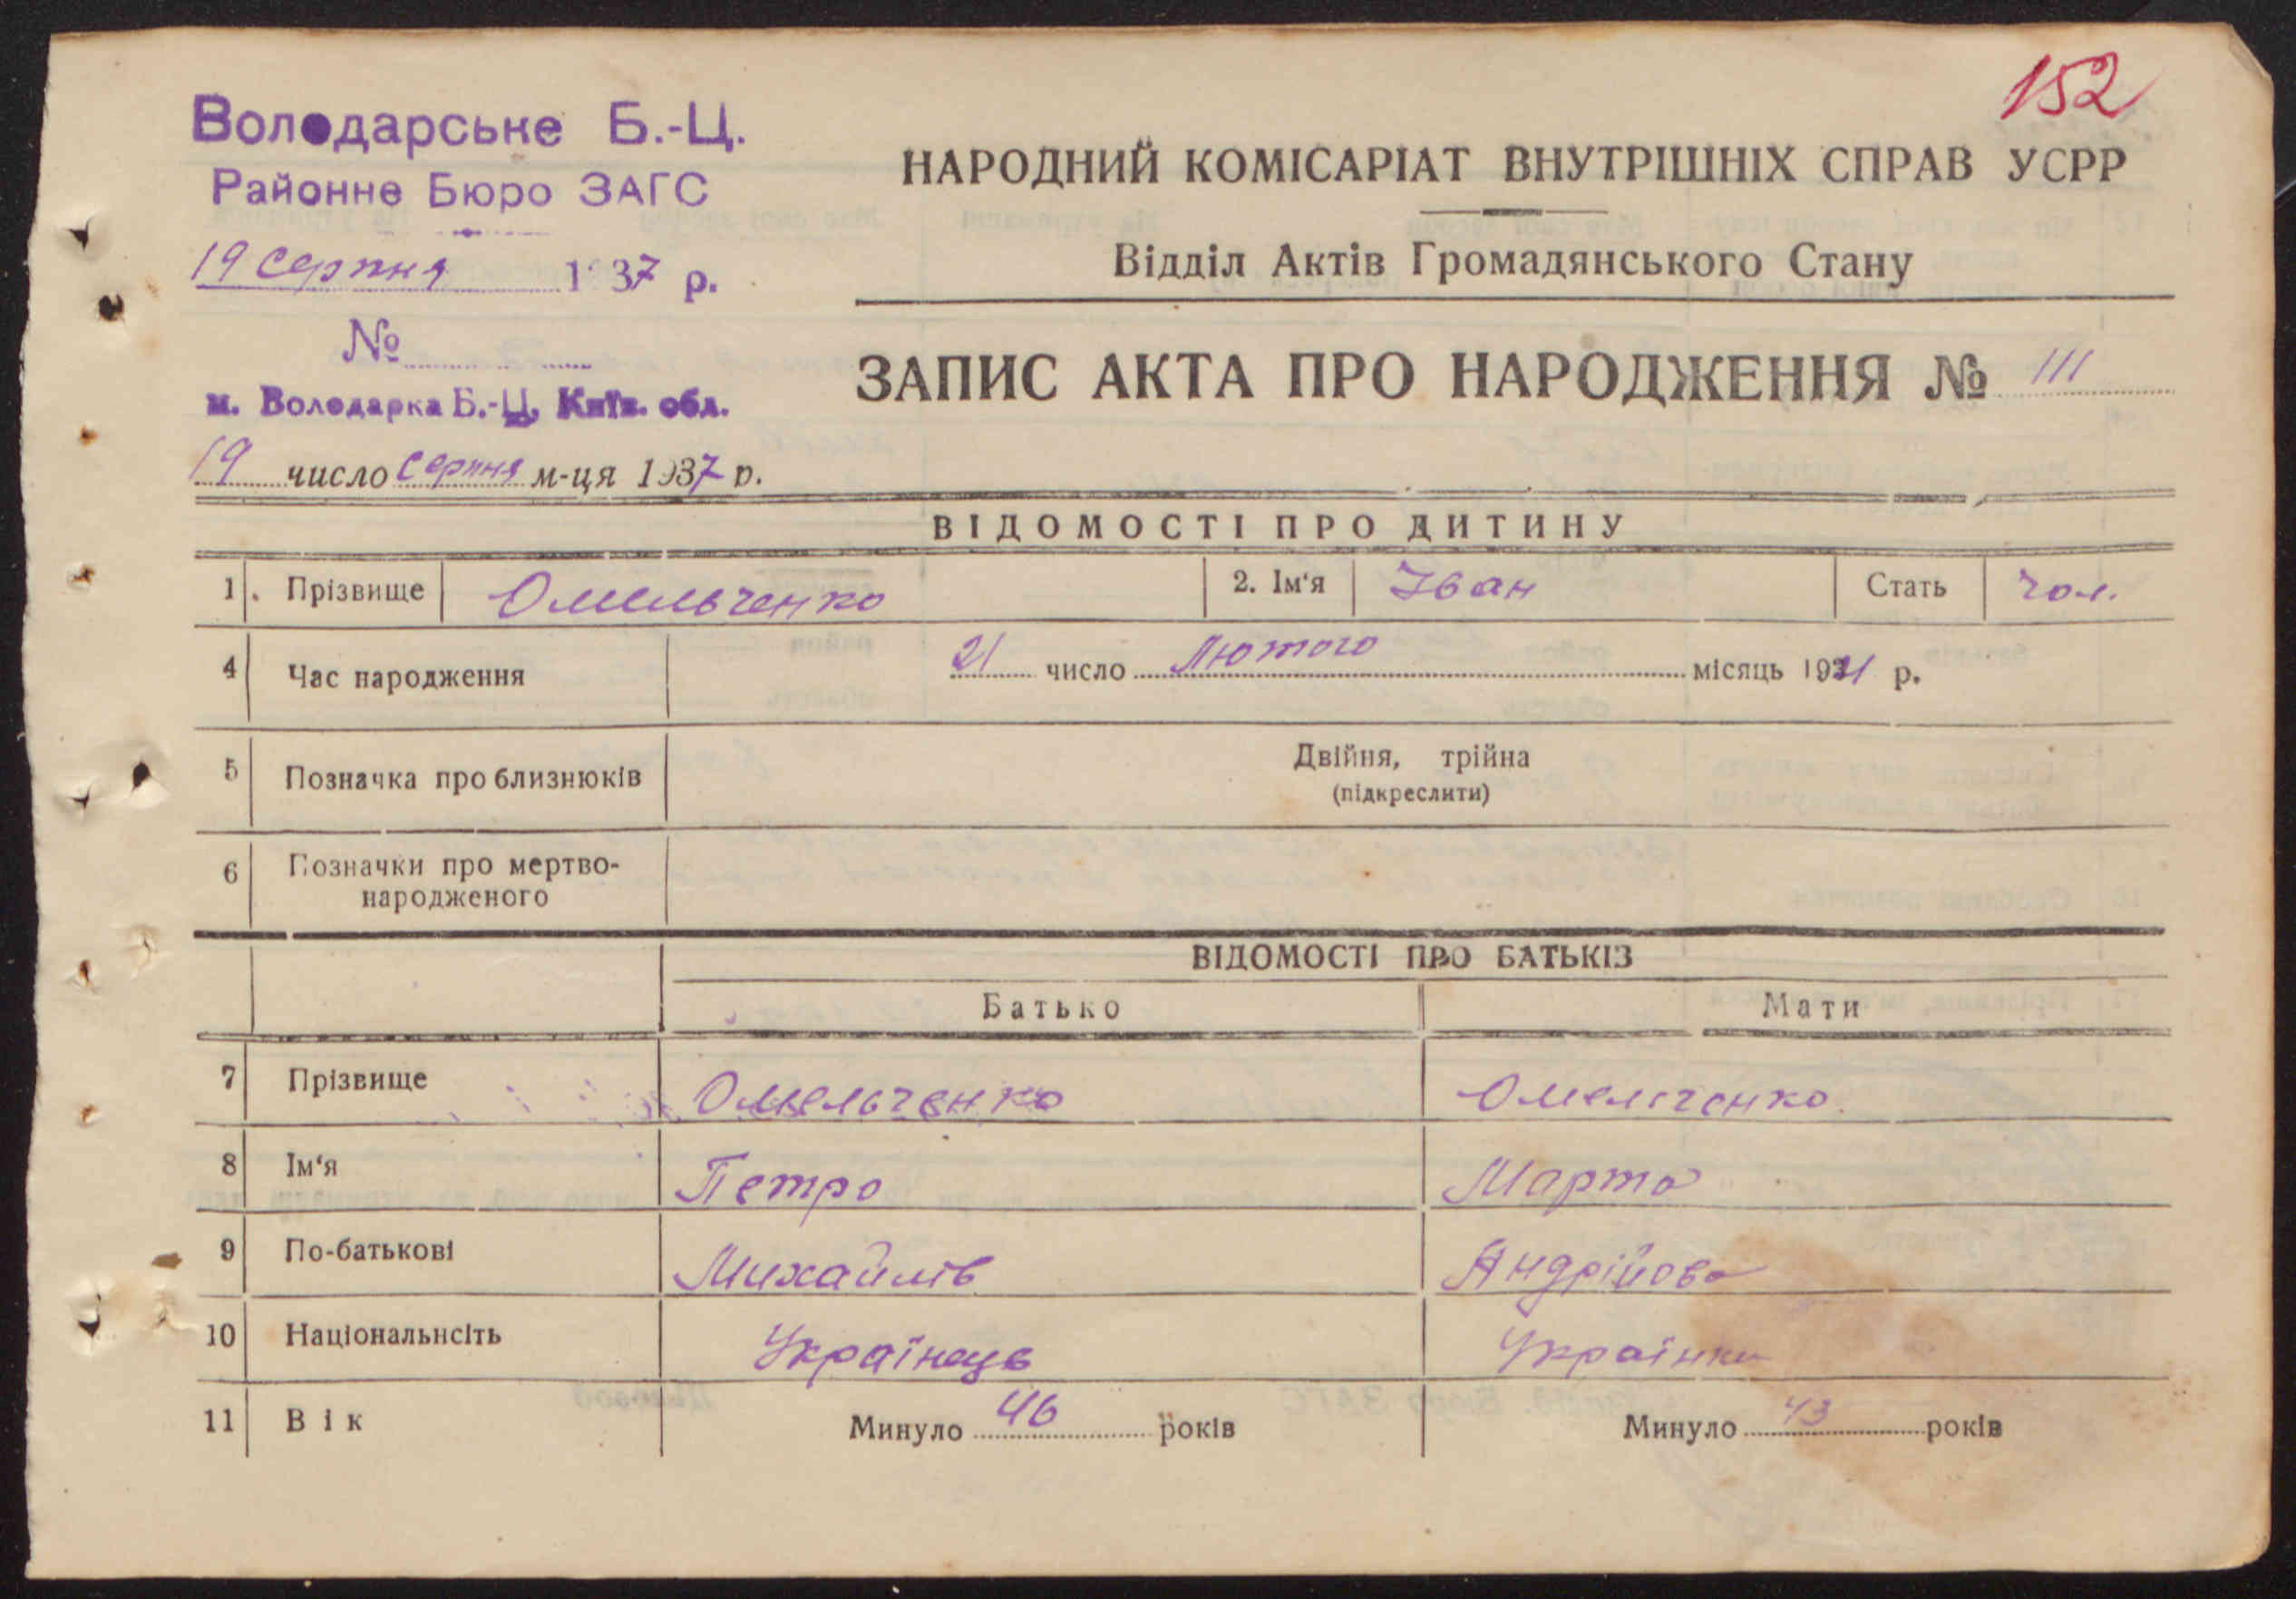 152
Володарське Б.-Ц.
Районне Бюро ЗАГС
19 серпня 1937 р.
№
м. Володарка Б.-Ц. Київ. обл.
19 число серпня м-ця 1937 р.
НАРОДНИЙ КОМІСАРІАТ ВНУТРІШНІХ СПРАВ УСРР
Відділ Актів Громадянського Стану
ЗАПИС АКТА ПРО НАРОДЖЕННЯ № 111
ВІДОМОСТІ ПРО ДИТИНУ
1. Прізвище Омельченко 2. Ім'я Іван Стать чол.
4 Час народження 21 число Лютого місяць 1921 р.
5 Позначка про близнюків Двійня, трійна
(підкреслити)
6 Позначки про мертво-
народженого
ВІДОМОСТІ ПРО БАТЬКІВ
Батько Мати
7 Прізвище Омельченко Омельченко
8 Ім'я Петро Марта
9 По-батькові Михайлів Андрійова
10 Національнсіть Українець Українка
11 Вік Минуло 46 років Минуло 43 років